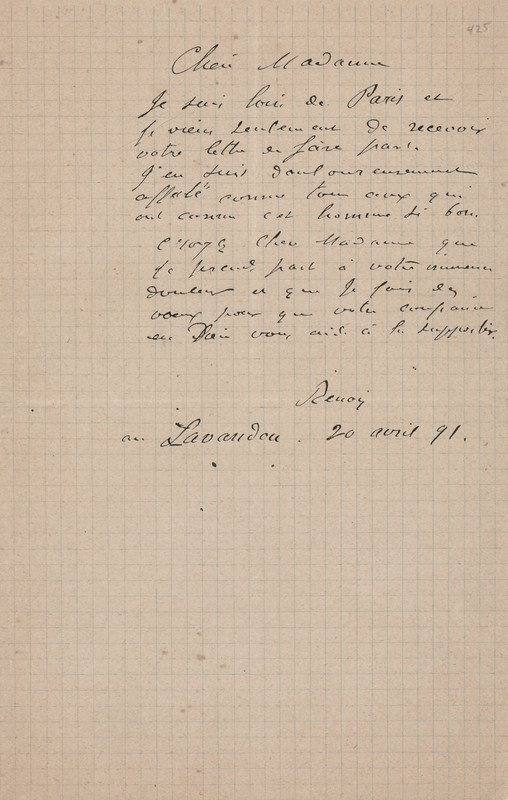 425
Chère Madame
Je suis loin de Paris et
je viens seulement de recevoir
votre lettre de faire part.
J'en suis douloureusement
affecté comme tous ceux qui
ont connu cet homme si bon.
Croyez Chère Madame que
je prends part à votre immense
douleur et que je fais des
vœux pour que votre confiance
en Dieu vous aide à la supporter.
Renoir
au Lavandou. 20 avril 91.